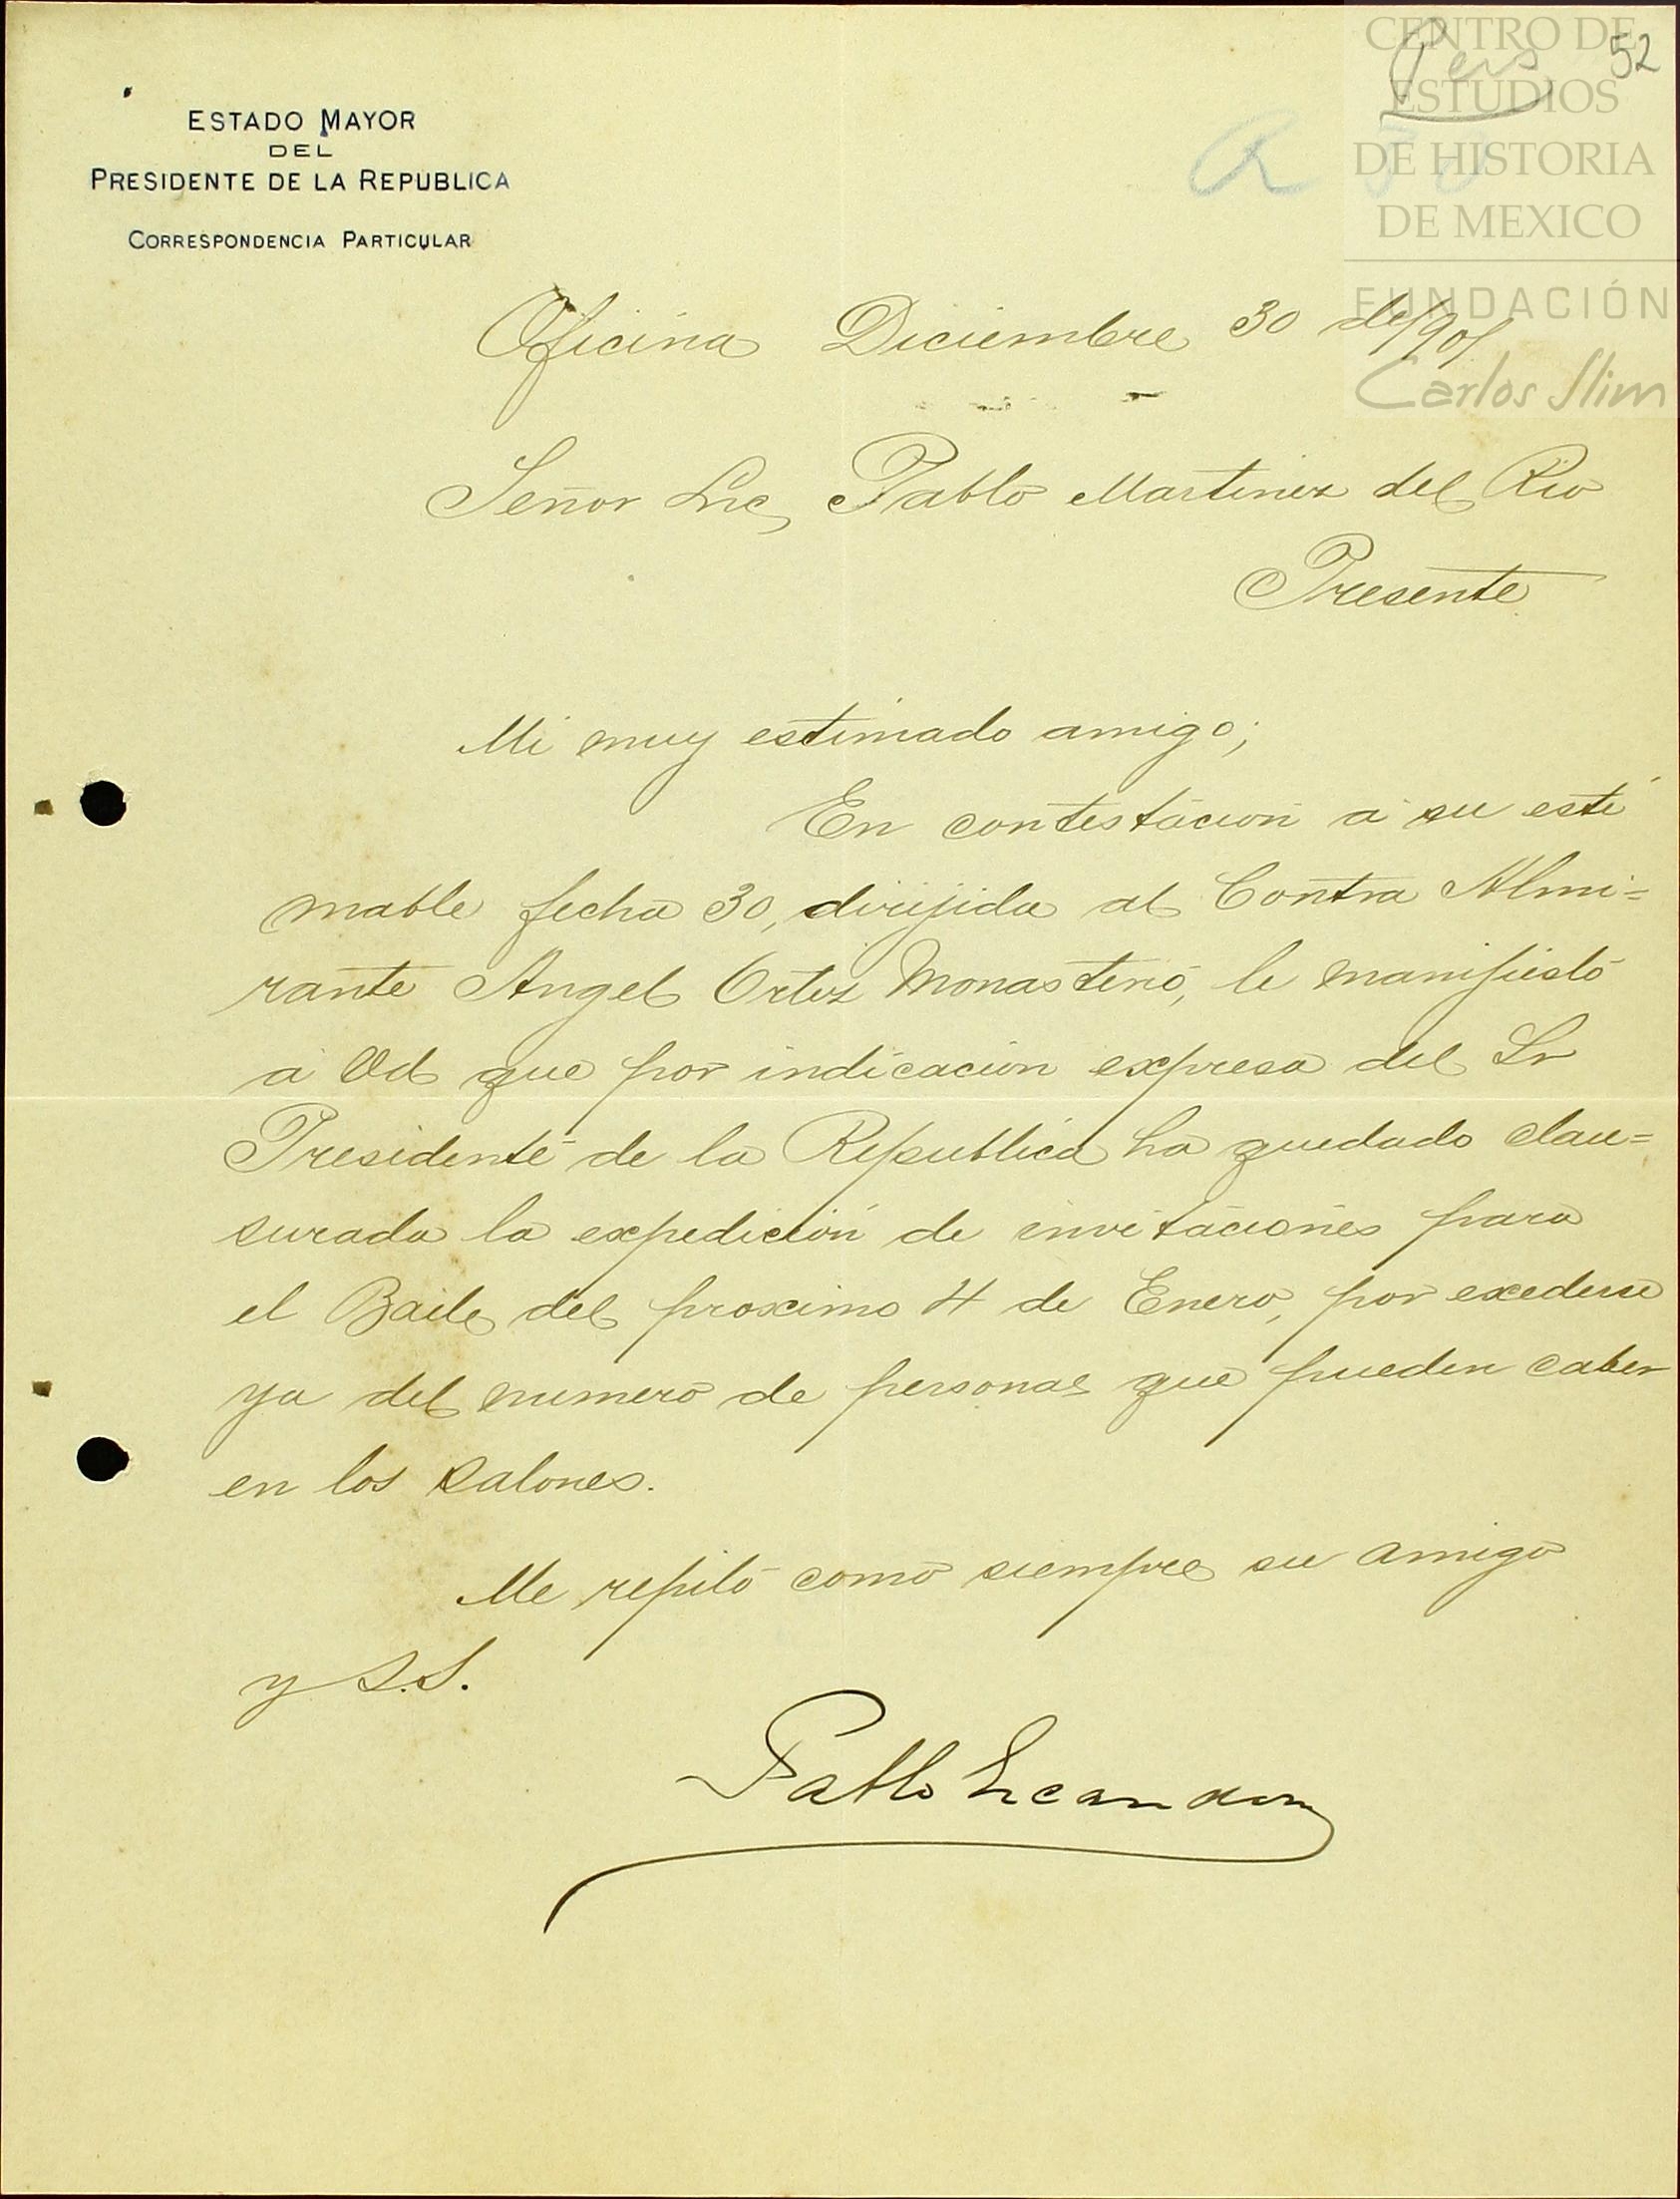 CENTRO DE
ESTUDIOS
DE HISTORIA
DE MEXICO
FUNDACIÓN
Carlos Slim
Pers 52
ESTADO MAYOR
DEL
PRESIDENTE DE LA REPUBLICA
CORRESPONDENCIA PARTICULAR
Oficina Diciembre 30 de 1901
Señor Lic Pablo Martinez del Rio
Presente
Mi muy estimado amigo;
En contestación a su esti
mable fecha 30, dirijida al Contra Almi=
rante Angel Ortiz Monasterio, le manifiesto
a Vd que por indicacion expresa del Sr
Presidente de la Republica ha quedado clau=
surada la expedición de invitaciones para
el Baile del proximo 4 de Enero, por exederse
ya del numero de personas que pueden caber
en los salones.
Me repito como siempre su amigo
y S.S.
Pablo Escandon